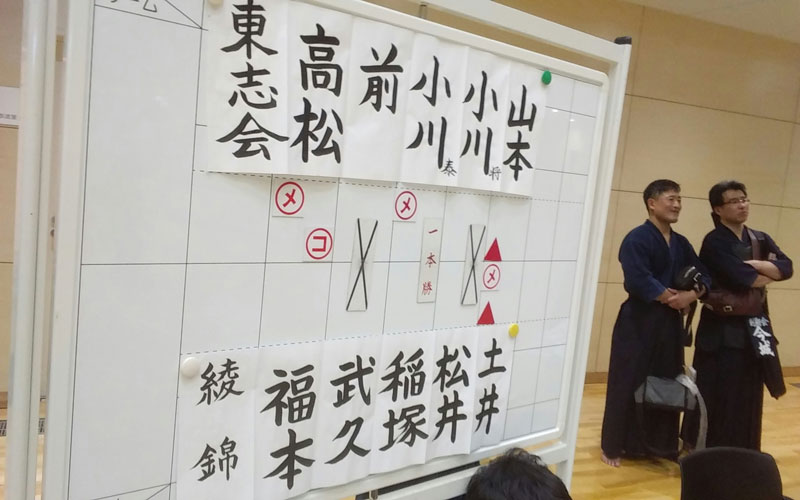 チーム
東志会
高松
前
小川 泰
小川 将
山本
メ
メ
コ
一本勝
メ
綾錦
福本
武久
稲塚
松井
土井